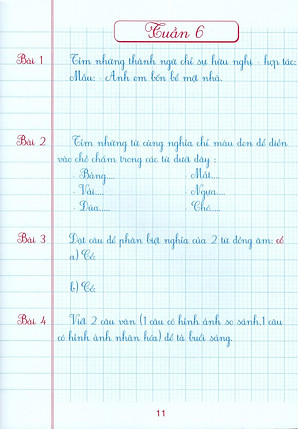 Tuần 6
Bài 1 Tìm những thành ngữ chỉ sự hữu nghị - hợp tác:
Mẫu: - Anh em bốn bể một nhà.
Bài 2 Tìm những từ cùng nghĩa chỉ màu đen để điền
vào chỗ chấm trong các từ dưới đây :
- Bảng.... - Mắt....
- Vải.... - Ngựa....
- Đũa..... - Chó....
Bài 3 Đặt câu để phân biệt nghĩa của 2 từ đồng âm: cổ
a) Cổ:
b) Cổ:
Bài 4 Viết 2 câu văn (1 câu có hình ảnh so sánh,1 câu
có hình ảnh nhân hóa) để tả buổi sáng.
11